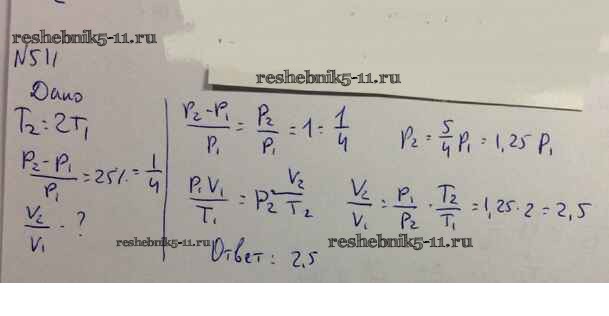 reshebnik5-11.ru
N511
reshebnik5-11.ru
Дано
T₂=2T₁
(P₂-P₁)/P₁=25%=1/4
V₂/V₁ - ?
(P₂-P₁)/P₁ = P₂/P₁ = 1 = 1/4
P₂ = 5/4 P₁ = 1,25 P₁
P₁V₁/T₁ = P₂ V₂/T₂
V₂/V₁ = P₁/P₂ · T₂/T₁ = 1,25·2 = 2,5
reshebnik5-11.ru
reshebnik5-11.ru
Ответ: 2,5